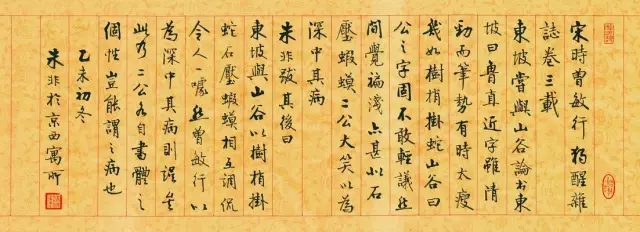 宋時曾敏行獨醒雜
誌卷三載
東坡嘗與山谷論書東
坡曰魯直近字雖清
勁而筆勢有時太瘦
幾如樹梢掛蛇山谷曰
公之字固不敢輕議然
間覺褊淺亦甚似石
壓蝦蟆二公大笑以為
深中其病
朱非發其後曰
東坡與山谷以樹梢掛
蛇石壓蝦蟆相互調侃
令人一噱然曾敏行以
為深中其病則誤矣
此乃二公各自書體之
個性豈能謂之病也
乙未初冬
朱非於京西寓所